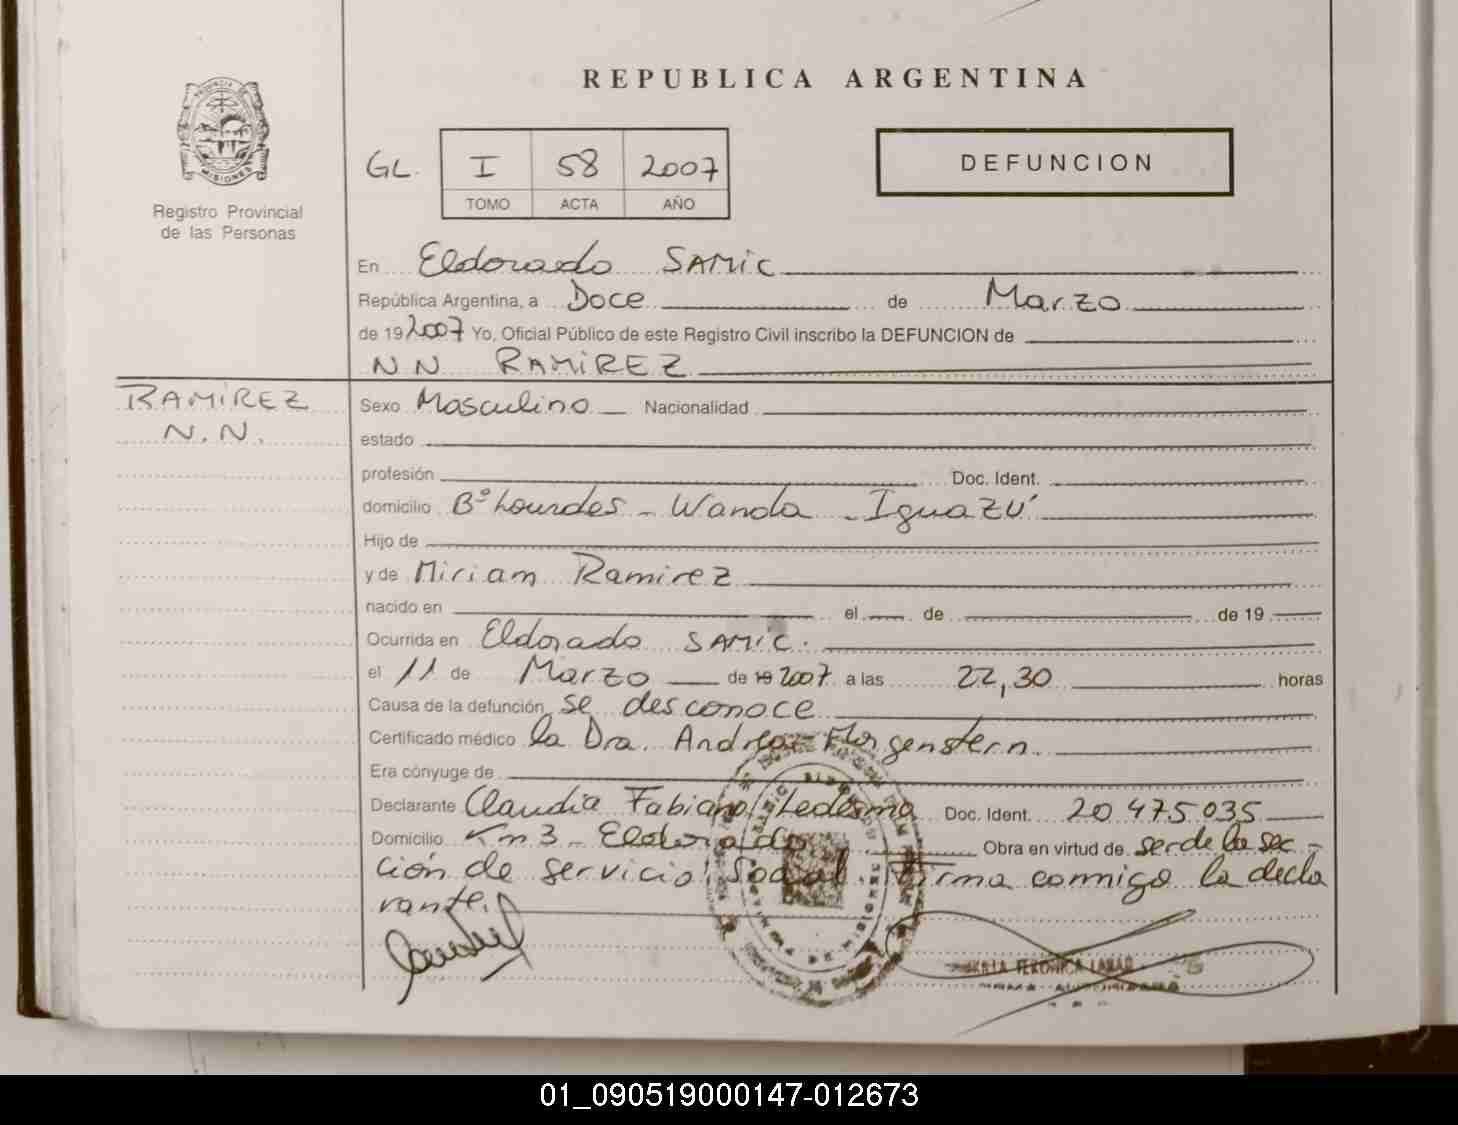 REPUBLICA ARGENTINA
PROVINCIA DE
MISIONES
Registro Provincial
de las Personas
GL. I 58 2007
TOMO ACTA AÑO
DEFUNCION
En Eldorado SAMIC
República Argentina, a Doce de Marzo
de 19 2007 Yo, Oficial Público de este Registro Civil inscribo la DEFUNCION de
NN RAMIREZ
RAMIREZ
N.N.
Sexo Masculino Nacionalidad
estado
profesión Doc. Ident.
domicilio Bº Lourdes - Wanda - Iguazú
Hijo de
y de Miriam Ramirez
nacido en el de de 19
Ocurrida en Eldorado SAMIC.
el 11 de Marzo de 19 2007 a las 22,30 horas
Causa de la defunción se desconoce
Certificado médico la Dra. Andrea Florgenstern
Era cónyuge de
Declarante Claudia Fabiana Ledesma Doc. Ident. 20.475.035
Domicilio Km 3 - Eldorado Obra en virtud de ser de la sec-
ción de servicio Social. firma conmigo la decla
rante.
VERONICA
01_090519000147-012673